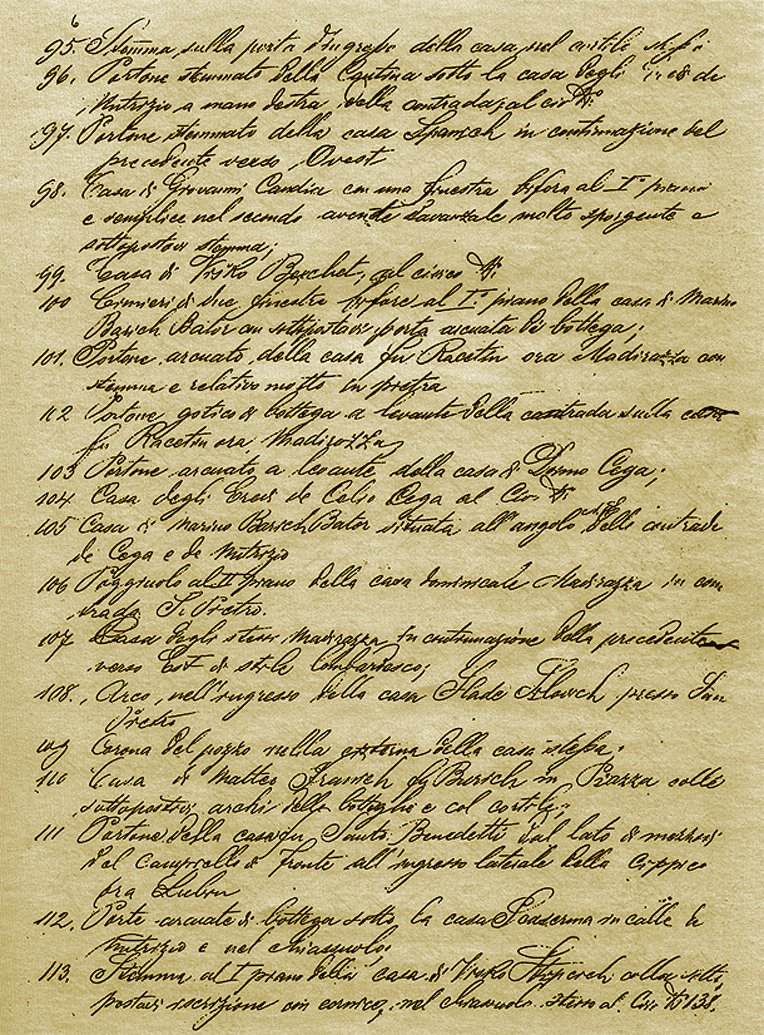 6
95. Stemma sulla porta d'ingresso della casa, nel cortile
96. Portone stemmato della Cantina sotto la casa degli de
Mitrizio a mano destra della contrada, al civ No
97. Portone stemmato della casa Spanich in continuazione del
precedente verso Ovest
98. Casa di Giovanni Candia con una finestra bifora al Io piano
e semplice nel secondo avente davanzale molto sporgente e
sottopostovi stemma;
99. Casa di Visko Berchet, al civico No
100 Cimieri di due finestre bifore al Io piano della casa di Marino
Barich Bator con sottopostovi porta arcuata di bottega;
101. Portone arcuato della casa fu Racetin ora Madirazza con
stemma e relativo motto in pietra
112 Portone gotico di bottega a levante della contrada sulla casa
fu Racetin ora Madirozza
103 Portone arcuato a levante della casa di Doimo Cega;
104 Casa degli Eredi de Celio Cega al Civ. No
105 Casa di Marino Barich Bator situata all'angolo delle contrade
de Cega e de Mitrizio
106 Poggiuolo al II piano della casa dominicale Madirazza in con
trada S. Pietro.
107 Casa degli stessi Madirazza in continuazione della precedente
verso Est di stile lombardesco;
108. Arco, nell'ingresso della casa Slade Silovich presso San
Pietro
109 Corona del pozzo nella cisterna della casa stessa.
110 Casa di Matteo Franich fu Bursich in Piazza colle
sottopostovi archi delle botteghe e col cortile;
111 Portone della casa fu Santo Benedetti dal lato di mezzodì
del Campanile di fronte all'ingresso laterale della Cippico
ora Lubin
112. Porte arcuate di bottega sotto la casa in calle de
Mitrizio e nel chiassuolo;
113. Stemma al I piano della casa di Visko colla sotto
postavi iscrizione con cornice, nel chiassuolo stesso al Civ. No 138.